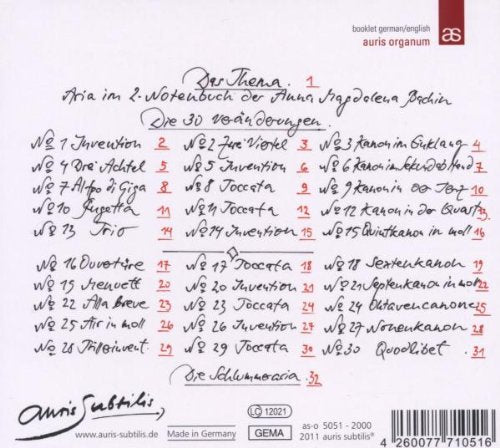 booklet german/english
auris organum
as
Das Thema. 1
Aria im 2. Notenbuch der Anna Magdalena Bachin
Die 30 Veränderungen.
No 1 Invention 2 No 2 Zwei Viertel 3 No 3 Kanon im Einklang 4
No 4 Drei Achtel 5 No 5 Invention 6 No 6 Kanon im Sekundabstand 7
No 7 Al tpo di Giga 8 No 8 Toccata 9 No 9 Kanon in der Terz 10
No 10 Fugetta 11 No 11 Toccata 12 No 12 Kanon in der Quart 13
No 13 Trio 14 No 14 Invention 15 No 15 Quintkanon in moll 16
No 16 Ouvertüre 17 No 17 Toccata 18 No 18 Sextenkanon 19
No 19 Menuett 20 No 20 Invention 21 No 21 Septenkanon in moll 22
No 22 Alla breve 23 No 23 Toccata 24 No 24 Oktavencanone 25
No 25 Air in moll 26 No 26 Invention 27 No 27 Nonenkanon 28
No 28 Trillerinvent. 29 No 29 Toccata 30 No 30 Quodlibet 31
Die Schlummeraria 32
auris subtilis
www.auris-subtilis.de
Made in Germany
LC 12021
GEMA
as-o 5051 - 2000
2011 auris subtilis®
4 260077 710516